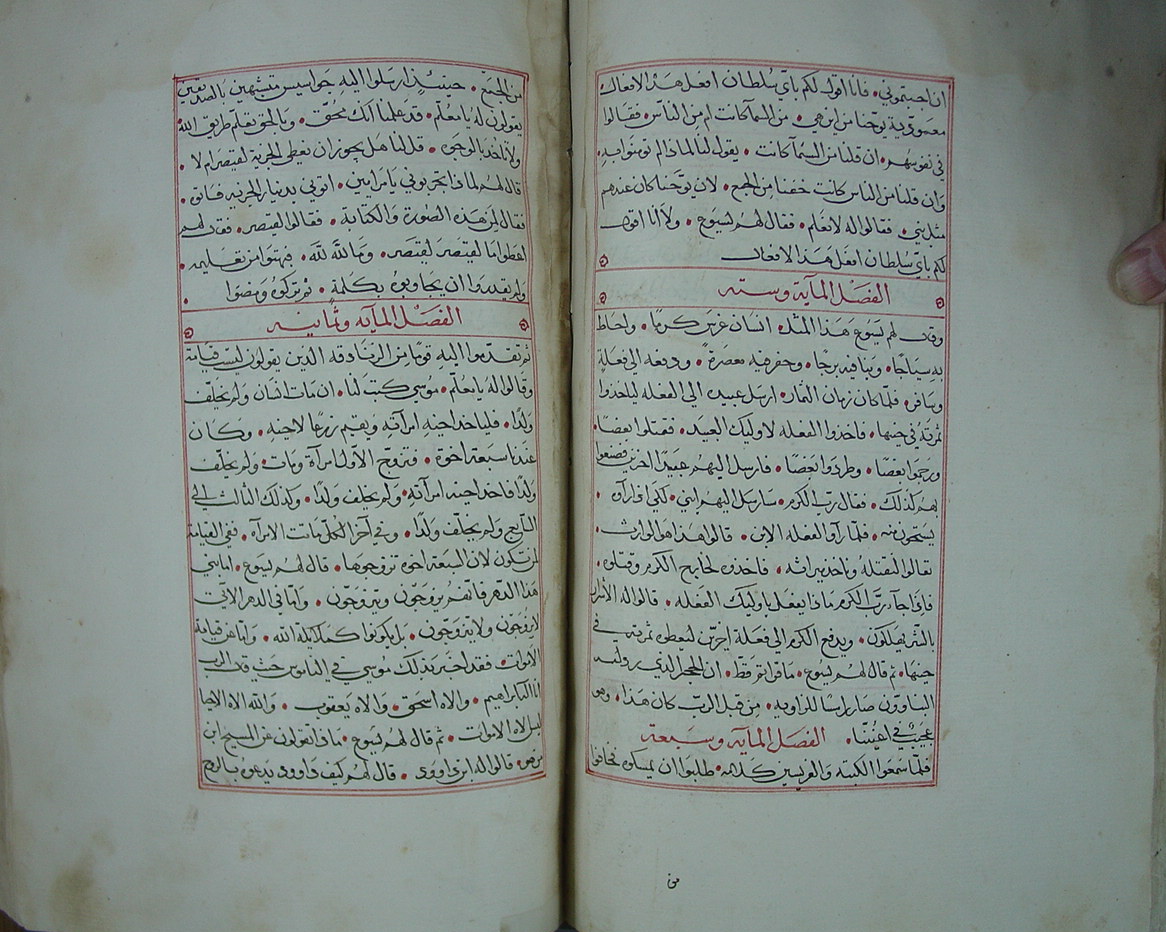 ان اجبتموني • فانا اقول لكم باي سلطان افعل هذه الافعال •
معمودية يوحنا من اين هي • من السما كانت ام من الناس • فقالوا
في نفوسهم • ان قلنا من السما كانت • يقول لنا لماذا لم تومنوا به •
وان قلنا من الناس كانت خفنا من الجمع • لان يوحنا كان عندهم
مثل نبي • فقالوا له لا نعلم • فقال لهم ليسوع • ولا انا اقول
لكم باي سلطان افعل هذا الافعال
الفصل الماية وسته
وقال لهم ليسوع هذا المثل • انسان غرس كرمًا • ولحاط
به سياجًا • وبنا فيه برجا • وحفر فيه معصرة • ودفعه الي فعلة
وسافر • فلما كان زمان الثمار • ارسل عبيده الي الفعله لياخذوا
ثمرته في حينها • فاخذوا الفعله لاوليك العبيد • فقتلوا بعضًا •
ورجموا بعضًا • وطردوا بعضًا • فارسل اليهم عبيدًا اخرين فصنعوا
بهم كذلك • فقال رب الكرم • سارسل اليهم ابني • لكي اذا راوه
يستحون منه • فلما راوا الفعله الابن • قالوا هذا هو الوارث •
تعالوا لنقتله وناخذ ميراثه • فاخذوه لخارج الكرم وقتلوه •
فاذا جا رب الكرم ماذا يفعل باوليك الفعله • قالوا له الأشرار
بالشر يهلكون • ويدفع الكرم الي فعلة اخرين ليعطوه ثمرته في
حينها • ثم قال لهم ليسوع • ما قراتم قط • ان الحجر الذي رذلته
البناوون صار راسًا للزاويه • من قبل الرب كان هذا • وهو
عجيب في اعيننا • الفصل الماية وسبعة
فلما سمعوا الكتبه والفريسين كلامه • طلبوا ان يمسكوه فخافوا
من
من الجمع • حينيذ ارسلوا اليه جواسيس متشبهين بالصديقين
يقولون له يا معلم • قد علمنا انك محق • وبالحق تعلم طريق الله
ولا تاخذ بالوجوه • قل لنا هل يجوز ان نعطي الجزية لقيصر ام لا •
قال لهم لماذا تجربوني يا مرايين • اتوني بدينار الجزيه فاتوه •
فقال لمن هذه الصورة والكتابة • فقالوا لقيصر • فقال لهم
اعطوا ما لقيصر لقيصر • وما لله لله • فبهتوا من تعليمه •
ولم يقدروا ان يجاوبوه بكلمة • ثم تركوه ومضوا
الفصل المايه وثمانيه
ثم تقدموا اليه قومًا من الزنادقه الذين يقولون ليست قيامة
وقالوا له يا معلم • موسي كتب لنا • ان مات انسان ولم يخلف
ولدًا • فلياخذ اخيه امراته ويقيم زرعًا لاخيه • وكان
عندنا سبعة اخوة • فتزوج الاول امرأة ومات • ولم يخلف
ولدًا فاخذ اخيه امراته • ولم يخلف ولدًا • وكذلك الثالث الي
السابع ولم يخلف ولدًا • وفي آخر الكل ماتت الامراه • ففي القيامة
لمن تكون لان السبعة اخوة تزوجوها • قال لهم ليسوع • اما بني
هذا الدهر فانهم يزوجون ويتزوجون • واما في الدهر الاتي
لا يزوجون ولا يتزوجون • بل يكونوا كملايكة الله • واما عن قيامة
الاموات • فقد اخبر بذلك موسي في الناموس حيث قال الرب
انا اله ابراهيم • والاه اسحق • والاه يعقوب • والله الاه الاحيا
ليس الاه الاموات • ثم قال لهم ليسوع • ماذا تقولون عن المسيح ابن
من هو • قالوا له ابن داوود • قال لهم كيف داوود يدعوه بالروح